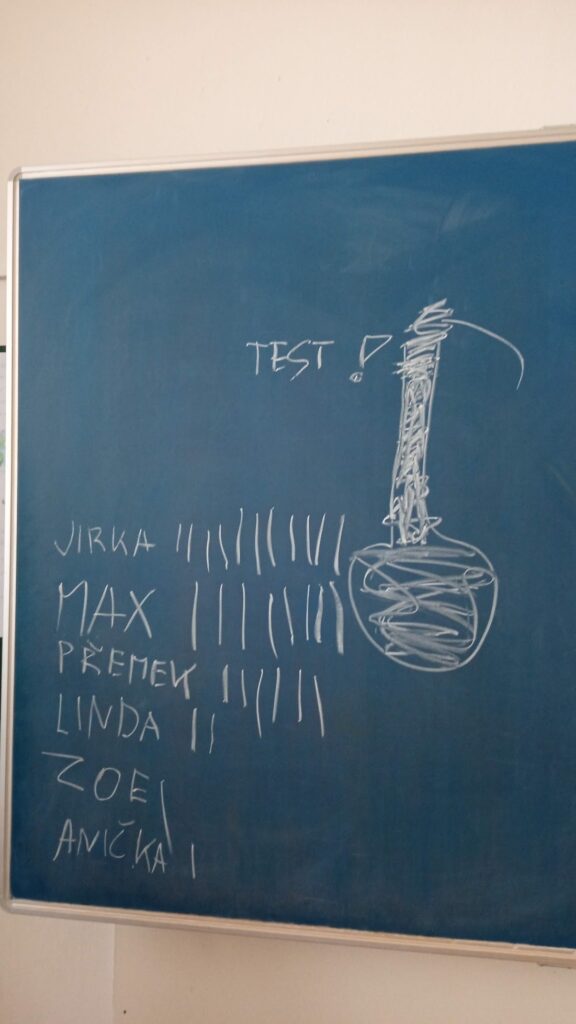 TEST !
JIRKA
MAX
PŘEMEK
LINDA
ZOE
ANIČKA